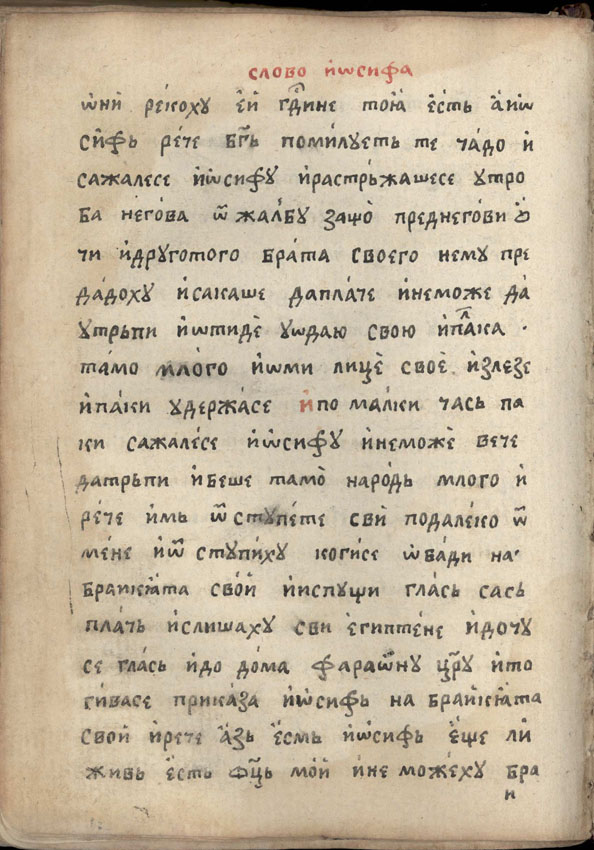 слово їѡсифа
ѡни́ ре́коху е́й гдⷭ҇ине тоꙗ̀ е́сть а́ иѡ
си́фь ре́че бг҃ь поми́луеть те ча́до и
сажалесе иѡ́сифу и́растрь́жашесе утро
ба него́ва ѿ жал̾бу зашо̀ преднегови ѻ́
чи и́друготого бра́та своего нему пре
да́доху и́сакаше дапла́че и́неможе да́
утрьпи и́ѡтидѐ уѡдаю свою и́пл҇ака
тамо мло́го и́ѡми лицѐ своѐ и́злезе
и́па́ки удержа́се и́по малки чась па
ки сажале́се иѡ́сифу и́неможѐ вече
датрьпи и́беше тамо̀ наро́дь млого и́
ре́че и́мь ѿступе́те сви́ подале́ко ѿ
ме́не и́ѿступи́ху коги́се ѡ́ва́ди на
браикꙗ́та сво́й и́испущи гла́сь сась
пла́чь и́слишаху сви е́гиптѣне и́дочу
се гла́сь и́до до́ма фараѡ́ну цр҃у и́то
ги́васе прика́за иѡ́сифь на браикꙗ́та
свои́ и́рече а́зь е́смь иѡ́сифь е́ще ли́
живь е́сть ѻц҃ь мо́й и́не може́ху бра
и